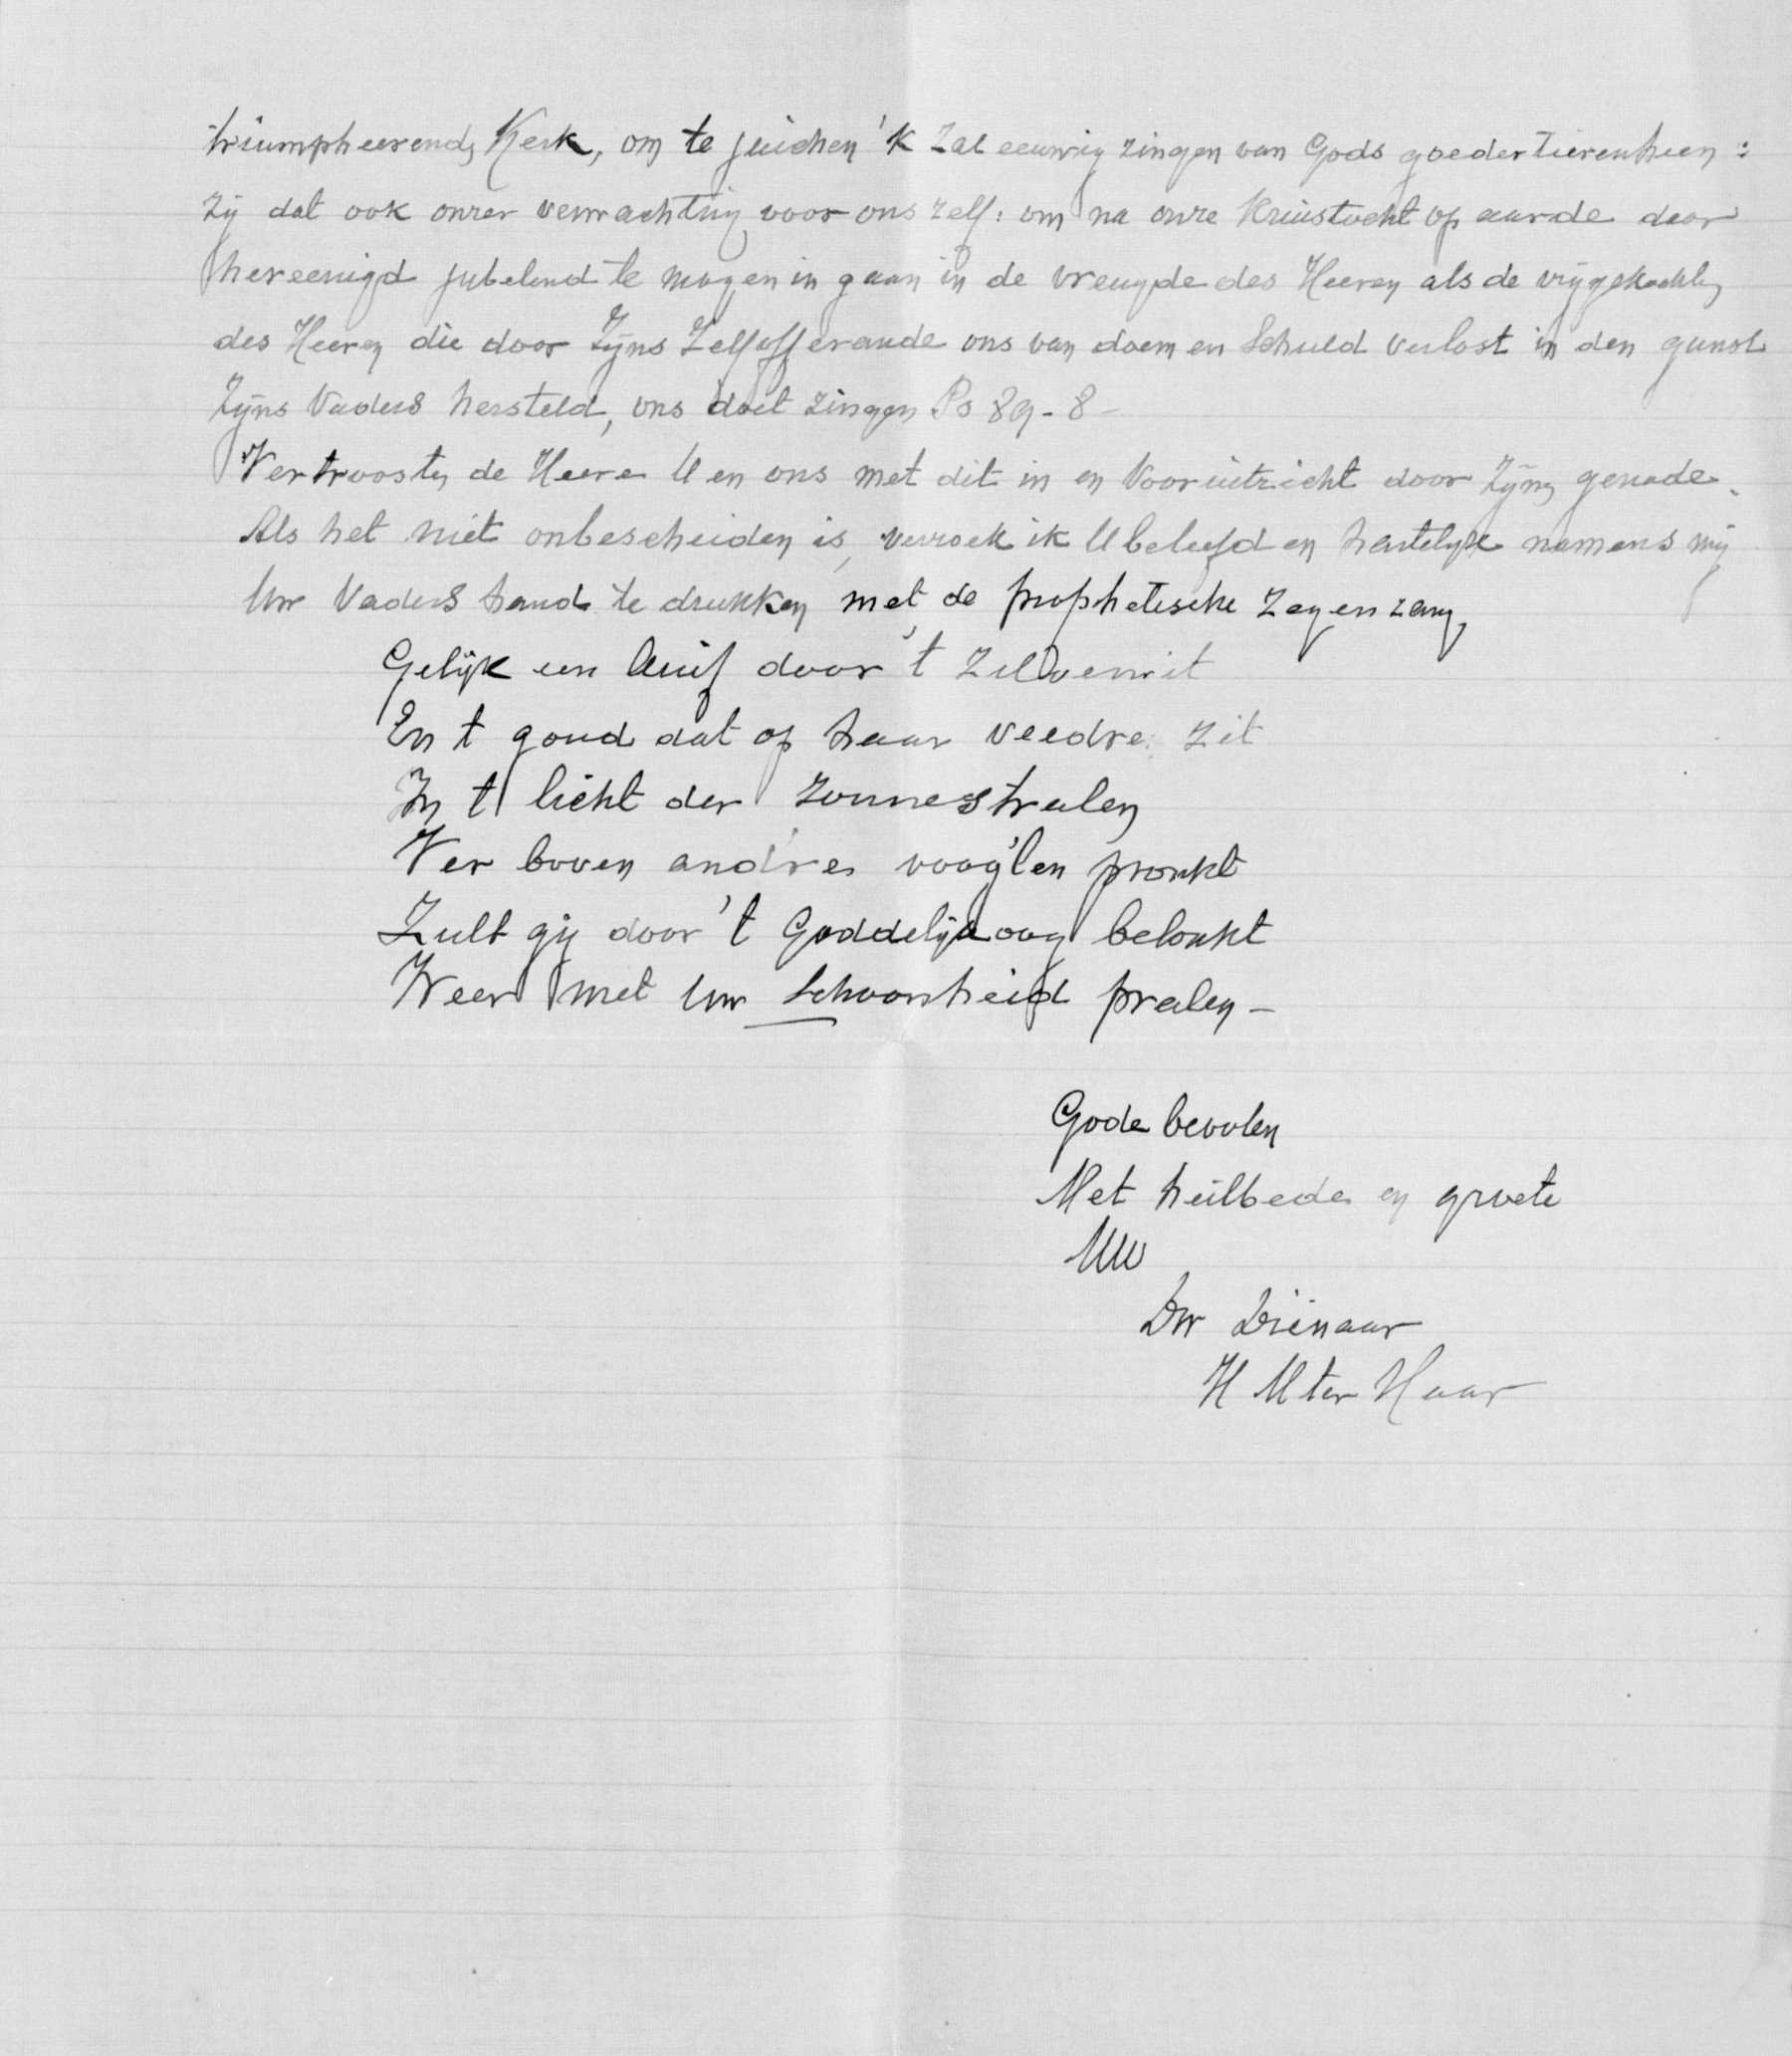 triumpheerende Kerk, om te juichen 'k zal eeuwig zingen van Gods goedertierenheen:
zij dat ook onzer verwachting voor ons zelf: om na onze Kruistocht op aarde daar
hereenigd jubelend te mogen in gaan in de vreugde des Heeren als de vrijgekochten
des Heeren die door Zijns Zelfofferande ons van doem en Schuld verlost in den gunst
Zijns Vaders hersteld, ons doet zingen Ps 89-8-
Vertrooste de Heere U en ons met dit in en Vooruitzicht door Zijne genade.
Als het niet onbescheiden is, verzoek ik U beleefd en hartelijk namens mij
Uw Vaders hand te drukken met de prophetische Zegenzang,
Gelijk een duif door 't Zilverwit
En t goud dat op haar veedre zit
In t licht der Zonnestralen
Ver boven and're voog'len pronkt
Zult gij door 't Goddelijk oog belonkt
Weer met Uw Schoonheid pralen-
Gode bevolen
Met heilbede en groete
Uw
Dw Dienaar
H M ter Haar